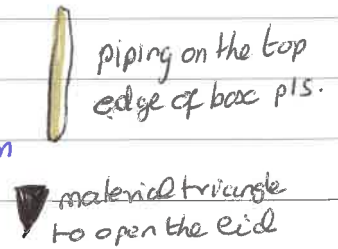 piping on the top
edge of box pls.
n
material triangle
to open the lid